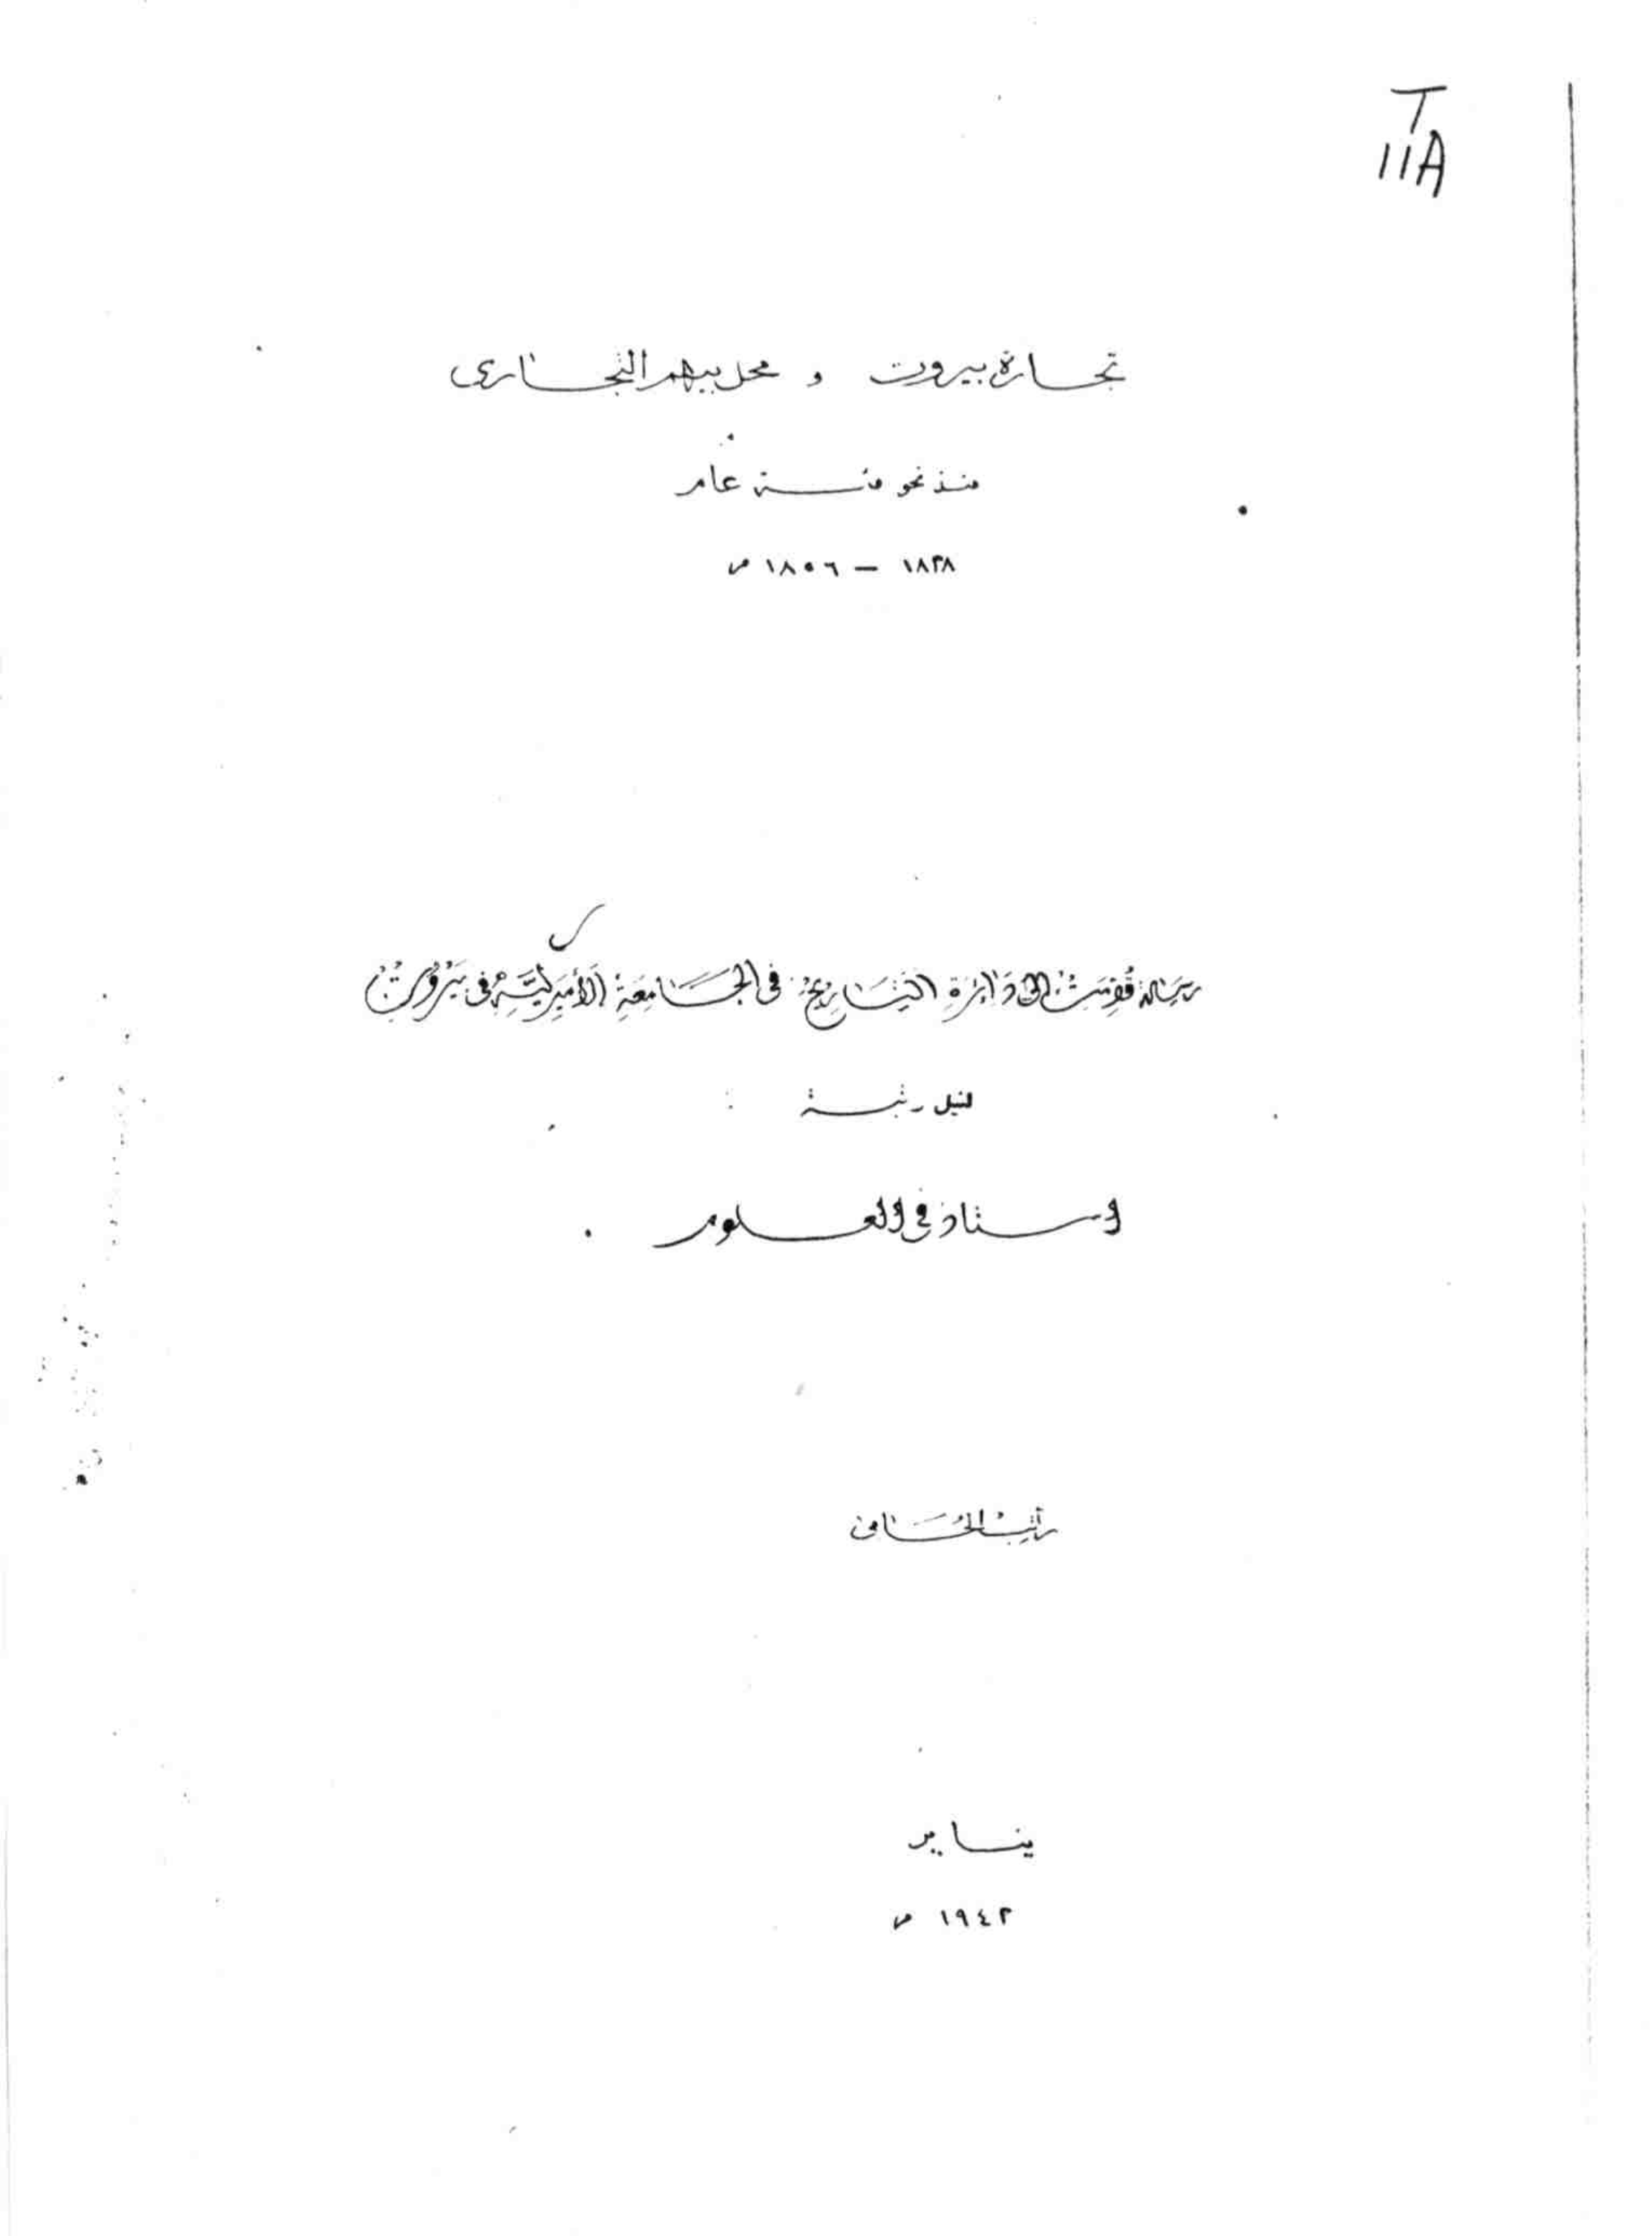 T
11A
تجارة بيروت و محل بيهم التجارى
منذ نحو مئة عام
١٨٢٨ – ١٨٥٦ م
رسالة قُدِّمَتْ إلى دَائِرَةِ التَّارِيخِ فى الجَامِعَةِ الأَمِيرْكِيَّةِ فى بَيْرُوتْ
لنيل رتبة
استاذ فى العلوم .
رئيف
يناير
١٩٤٢ م